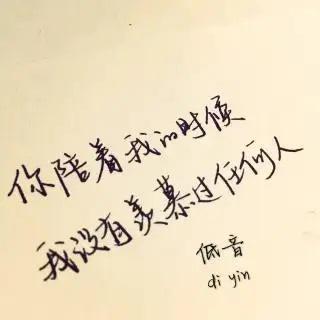 你陪着我的时候
我没有羡慕过任何人
低音
di yin